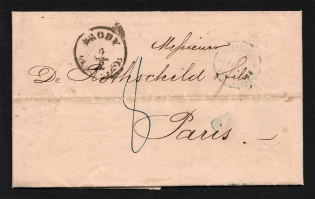 BRODY
Messieurs
De Rothschild & fils.
8
Paris. –